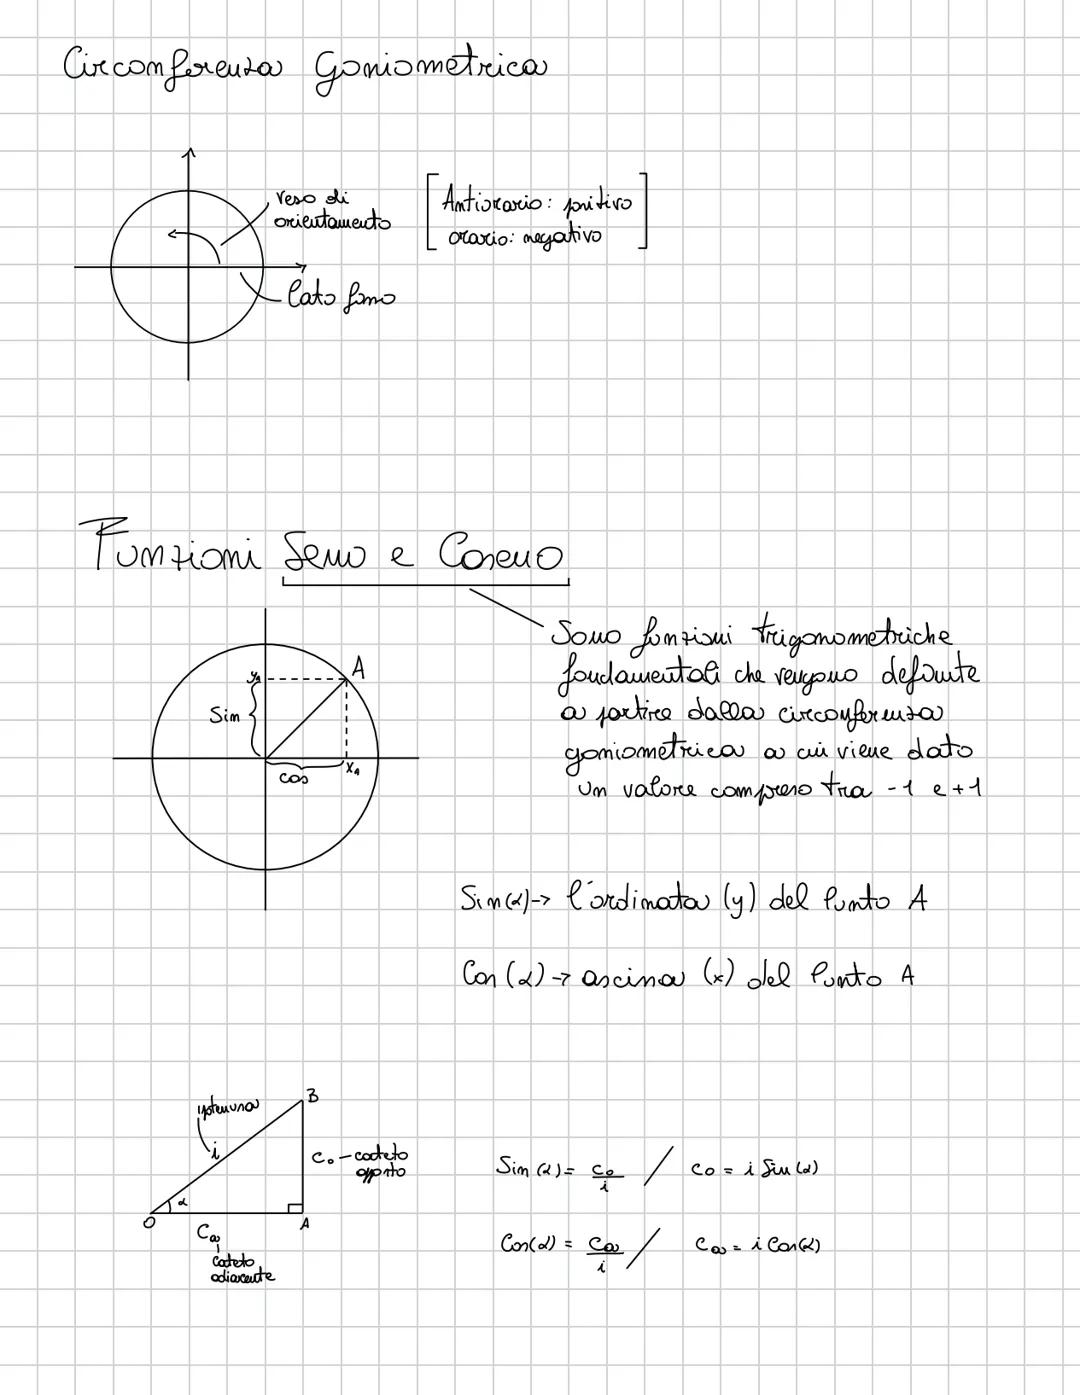 Circonferenza Goniometrica
verso di
orientamento
[Antiorario: positivo
orario: negativo]
lato fisso
Funzioni Seno e Coseno
Sono funzioni trigonometriche
fondamentali che vengono definite
a partire dalla circonferenza
goniometrica a cui viene dato
un valore compreso tra -1 e +1
yA
A
Sin
cos
xA
Sin(α)-> l'ordinata (y) del Punto A
Cos(α)-> ascissa (x) del Punto A
ipotenusa
B
i
Co - cateto
opposto
α
O
A
Ca
cateto
adiacente
Sin(α) = co/i / co = i Sin(α)
Cos(α) = ca/i / Ca = i Cos(α)